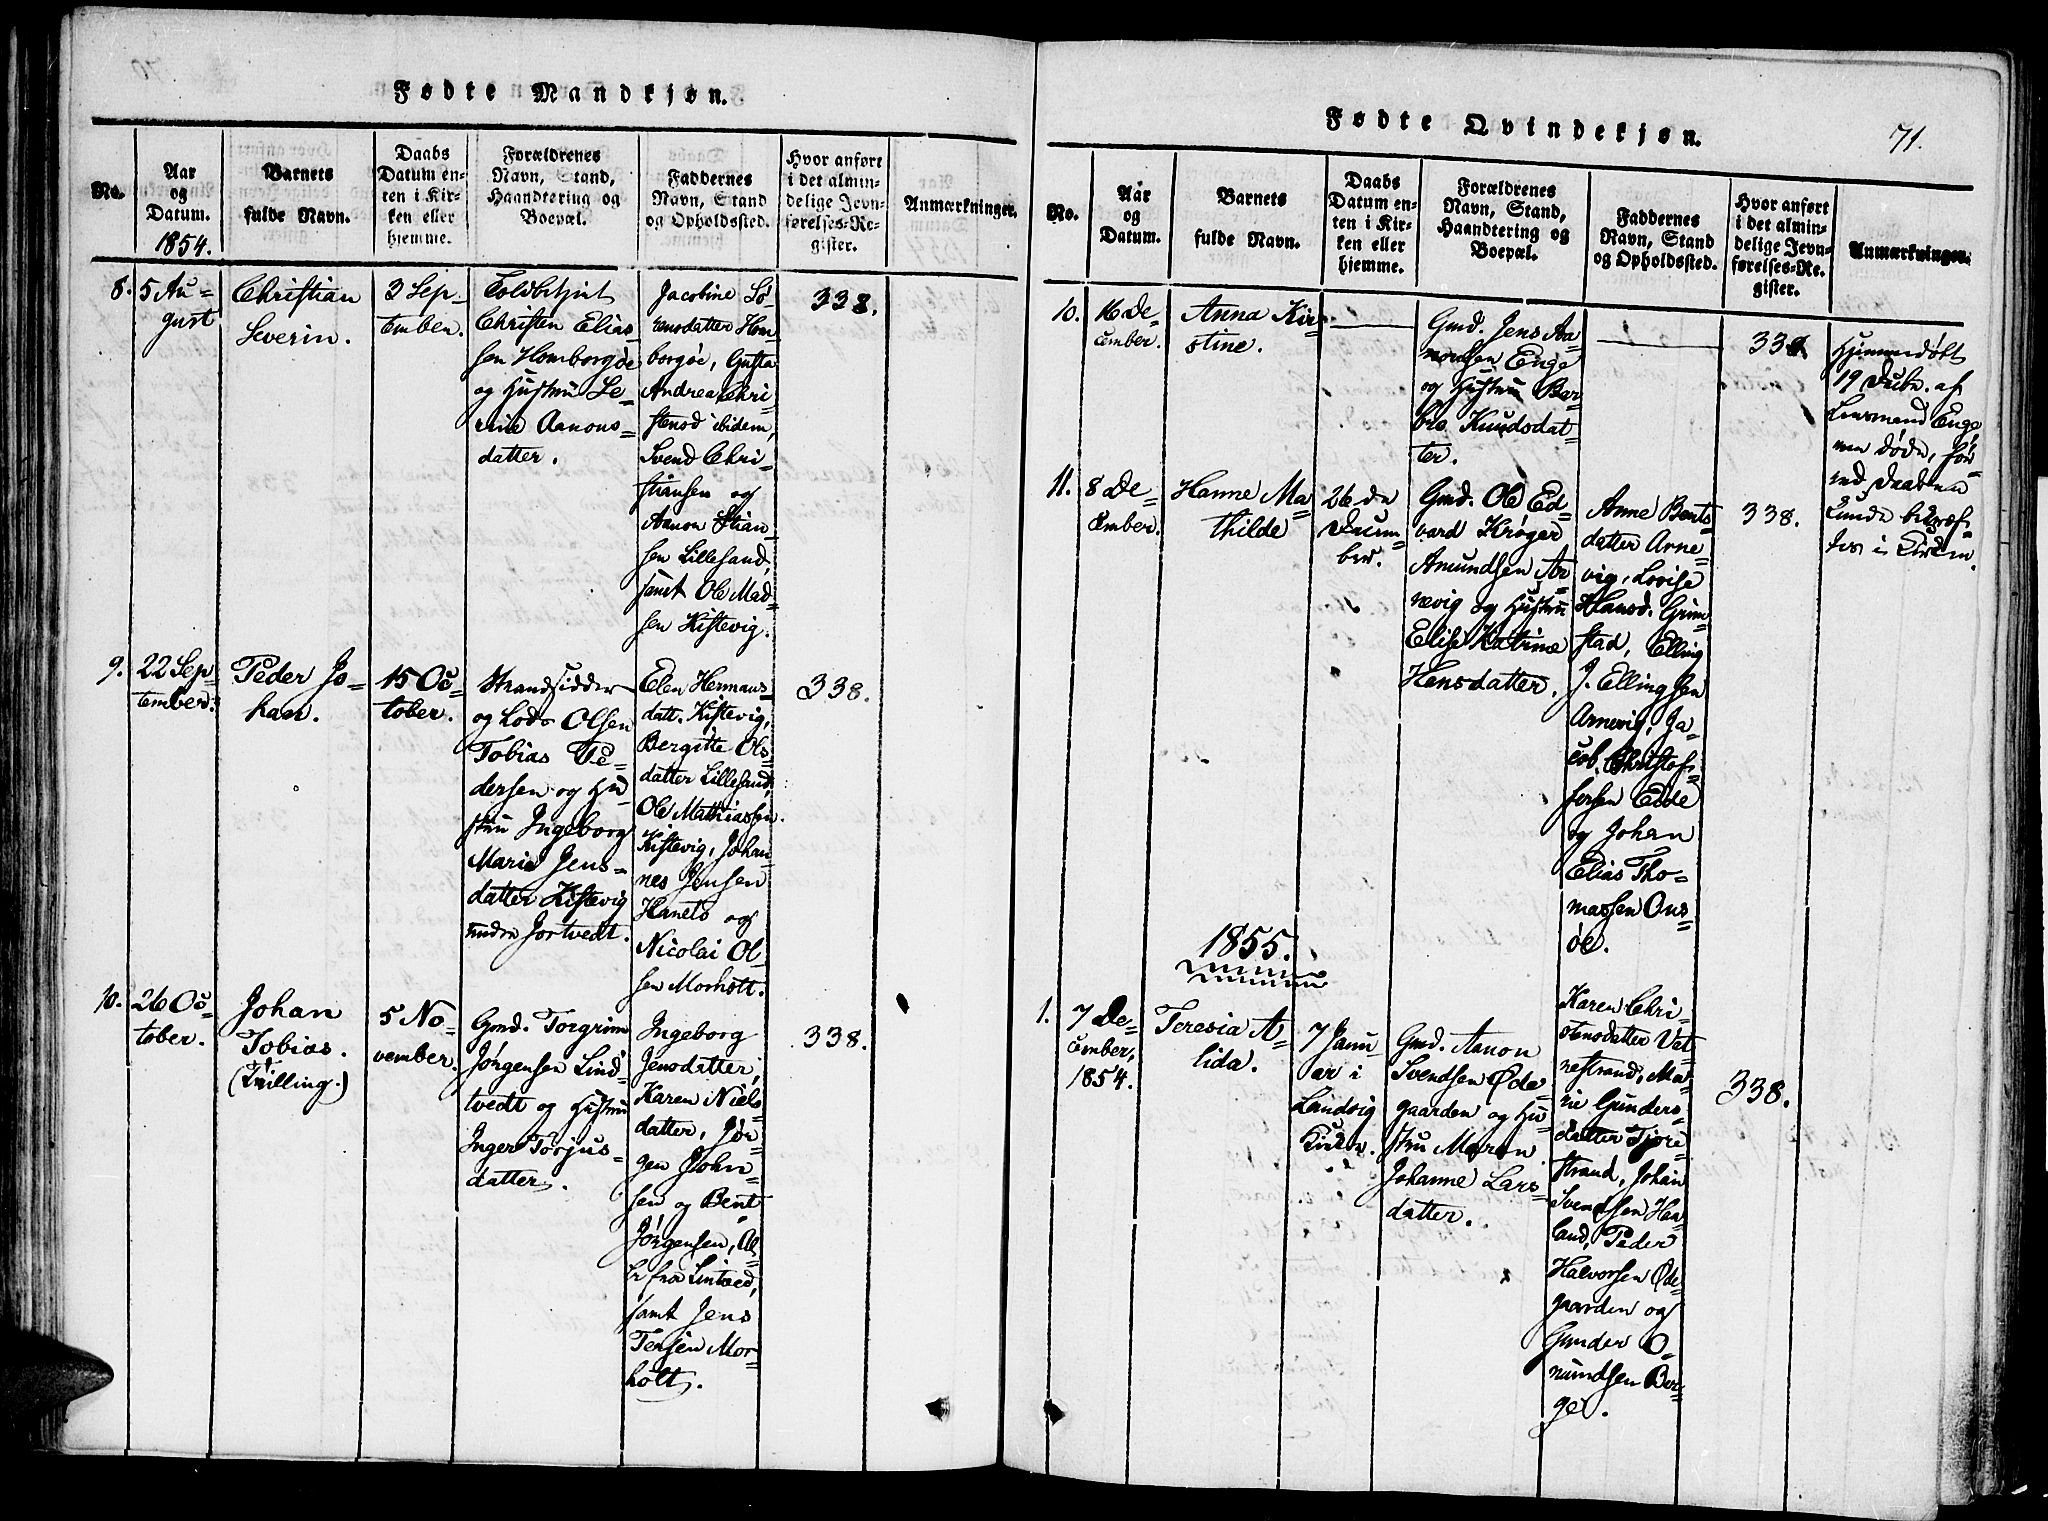 Fødte Mandkjøn.
No.
Aar
og
Datum.
1854.
Barnets
fulde Navn.
Daabs
Datum en-
ten i Kir-
ken eller
hjemme.
Forældrenes
Navn, Stand,
Haandtering og
Boepæl.
Faddernes
Navn, Stand
og Opholdssted.
Hvor anført
i det almin-
delige Jevn-
førelses-Re-
gister.
Anmærkninger.
8.
5 Au-
gust
Christian
Severin.
3 Sep-
tember.
Toldbetjent
Christen Elias-
sen Homborgøe
og Hustru Se-
rine Aanons-
datter.
Jacobine Sø-
rensdatter Hom-
borgøe, Gusta
Andrea Chri-
stensd ibidem,
Svend Chri-
stiansen og
Aanon Stian-
sen Lillesand,
samt Ole Mad-
sen Kistevig.
338.
9.
22 Sep-
tember.
Peder Jo-
han.
15 Oc-
tober.
Strandsidder
og Lods Olsen
Tobias Pe-
dersen og Hu-
stru Ingeborg
Marie Jens-
datter Kistevig
under Jortvedt.
Elen Hermans-
datt. Kistevig,
Bergitte Ols-
datter Lillesand,
Ole Mathiassen
Kistevig, Johan-
nes Jensen
Hanets og
Nicolai Ol-
sen Morholt.
338.
10.
26 Oc-
tober.
Johan
Tobias.
(Tvilling.)
5 No-
vember.
Gmd. Torgrim
Jørgensen Lind-
tvedt og Hustru
Inger Torjus-
datter.
Ingeborg
Jensdatter,
Karen Niels-
datter, Jør-
gen John-
sen og Bent
Jørgensen, Al-
le fra Lintved,
samt Jens
Terjsen Mor-
holt.
338.
Fødte Qvindekjøn.
71.
No.
Aar
og
Datum.
Barnets
fulde Navn.
Daabs
Datum en-
ten i Kir-
ken eller
hjemme.
Forældrenes
Navn, Stand,
Haandtering og
Boepæl.
Faddernes
Navn, Stand
og Opholdssted.
Hvor anført
i det almin-
delige Jevn-
førelses-Re-
gister.
Anmærkninger.
10.
16 De-
cember.
Anna Kir-
stine.
Gmd. Jens Aa-
nonsen Enge
og Hustru Bar-
bro Knudsdat-
ter.
338
Hjemmedøbt
19 Decbr. af
Lensmand Enge
men døde, før-
end Daaben
kunde bekræf-
tes i Kirken.
11.
8 De-
cember.
Hanne Ma-
thilde
26 de
Decem-
ber.
Gmd. Ole Ed-
vard Krøger
Amundsen Ar-
nevig og Hustru
Elise Katrine
Hansdatter.
Anne Bents-
datter Arne-
vig, Lovise
Hansd. Grim-
stad, Elling
J. Ellingsen
Arnevig, Ja-
cob Christof-
fersen Eide
og Johan
Elias Tho-
massen Ous-
øe.
338.
1855.
1.
7 De-
cember,
1854.
Teresia A-
lida.
7 Janu-
ar i
Landvig
Kirke.
Gmd. Aanon
Svendsen Øde-
gaarden og Hu-
stru Maren
Johanne Lars-
datter.
Karen Chri-
stensdatter Vet-
nestrand, Ma-
rie Gunders-
datter Tjore-
strand, Johan
Svendsen Haa-
land, Peder
Halvorsen Øde-
gaarden og
Gunder O-
numdsen Ber-
ge.
338.